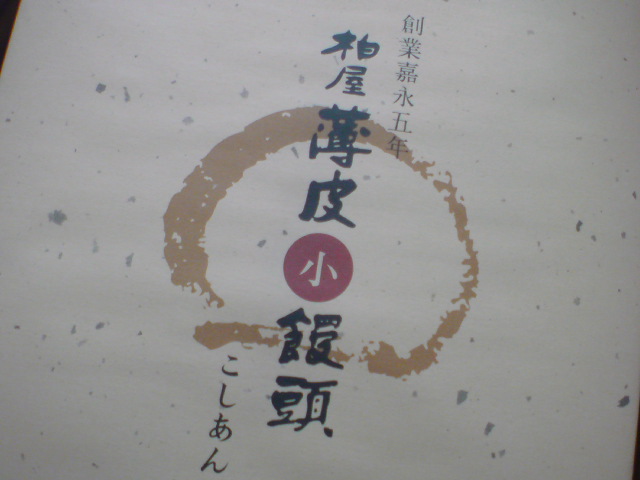 創業嘉永五年
柏屋薄皮小饅頭
こしあん